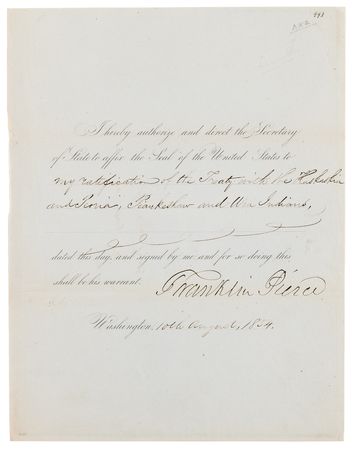 I hereby authorize and direct the Secretary
of State to affix the Seal of the United States to
my ratification of the Treaty with the Kaskaskia
and Peoria, Piankeshaw and Wea Indians,
dated this day, and signed by me and for so doing this
shall be his warrant.
Franklin Pierce
Washington, 10th August, 1854.